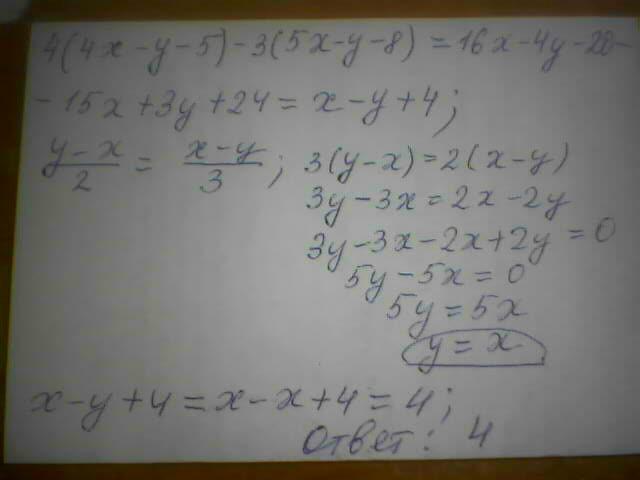 4(4x-y-5)-3(5x-y-8)=16x-4y-20-
-15x+3y+24=x-y+4;
(y-x)/2 = (x-y)/3; 3(y-x)=2(x-y)
3y-3x=2x-2y
3y-3x-2x+2y=0
5y-5x=0
5y=5x
y=x
x-y+4=x-x+4=4;
Ответ: 4